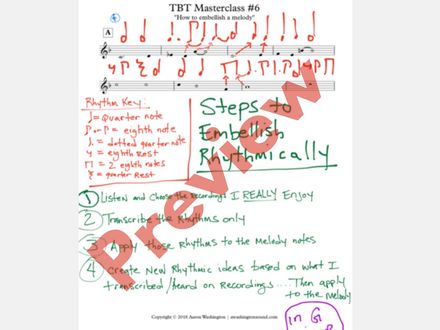 TBT Masterclass #6
"How to embellish a melody"
A
Rhythm Key:
= quarter note
or = eighth note
= dotted quarter note
= eighth Rest
= 2 eighth notes
= quarter Rest
Steps to
Embellish
Rhythmically
1 Listen and Choose the Recordings I REALLY Enjoy
2 Transcribe the Rhythms only
3 Apply those Rhythms to the Melody notes
4 Create New Rhythmic ideas based on what I
transcribed/heard on Recordings .... Then apply
to the Melody
in G
Copyright © 2018 Aaron Washington | awashingtonsound.com
Preview